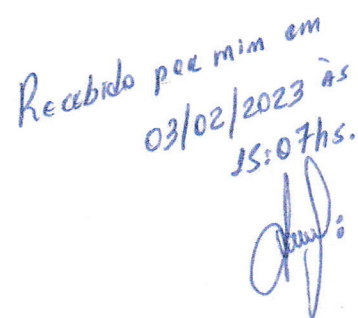 Recebido por mim em
03/02/2023 às
15:07hs.